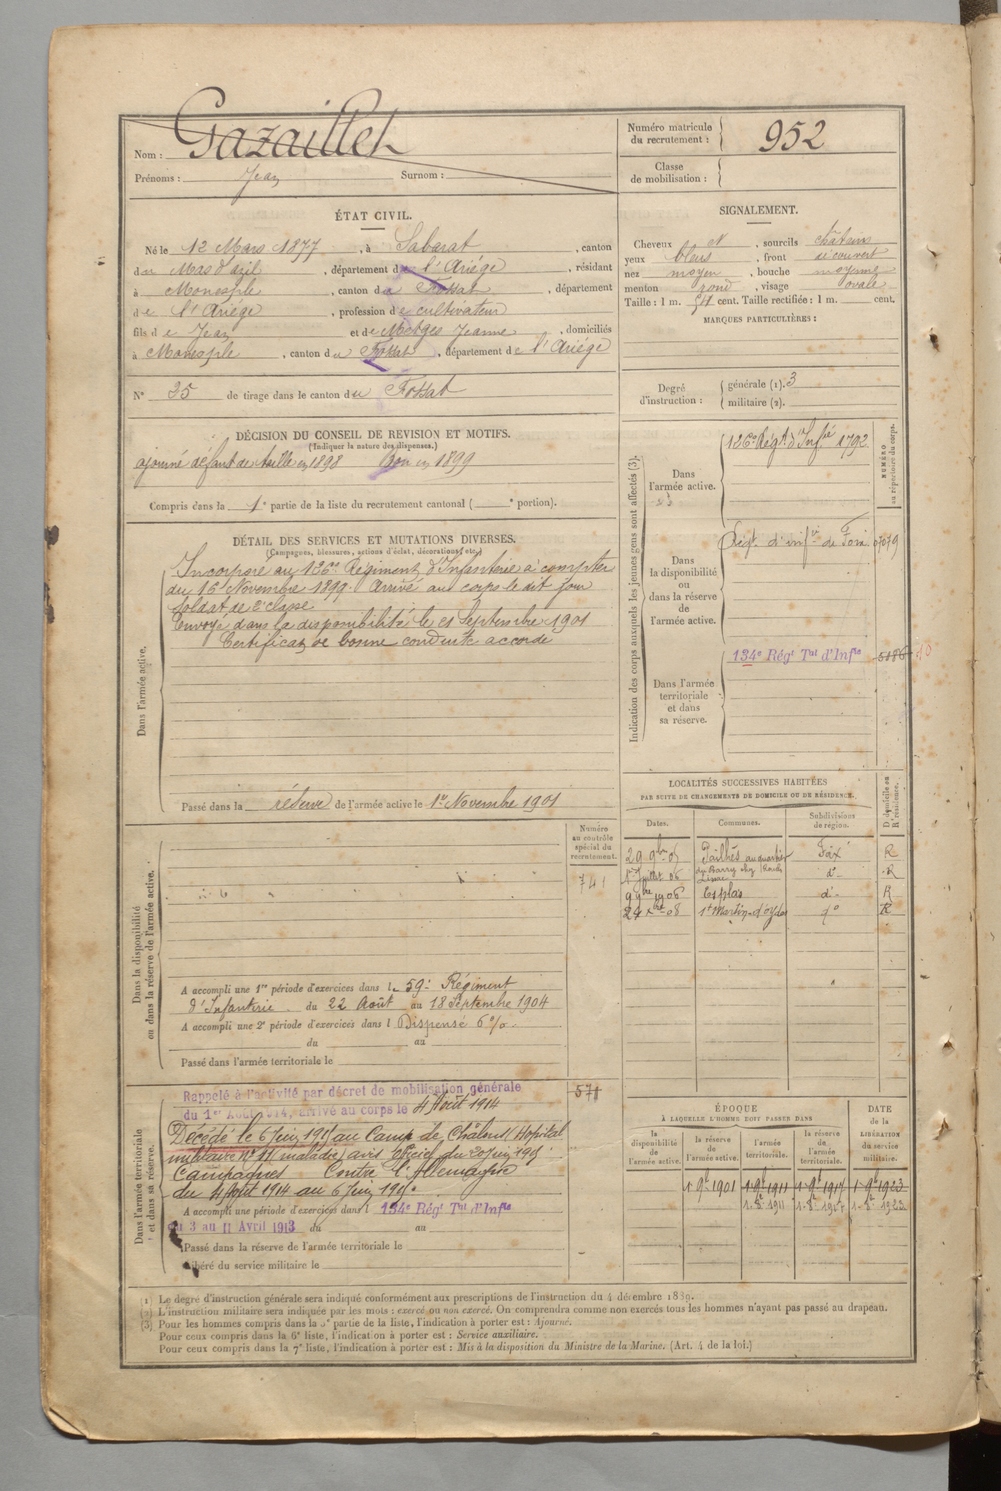 Nom : Gazaillet
Prénoms : Jean Surnom :
Numéro matricule du recrutement : 952
Classe de mobilisation :
ÉTAT CIVIL.
Né le 12 Mars 1877, à Sabarat, canton
du Mas d'azil, département de l'Ariége, résidant
à Monesple, canton du Fossat, département
de l'Ariége, profession de cultivateur
fils de Jean et de Metges Jeanne, domiciliés
à Monesple, canton du Fossat, département de l'Ariége
N° 25 de tirage dans le canton du Fossat
SIGNALEMENT.
Cheveux N, sourcils châtains
yeux bleus, front découvert
nez moyen, bouche moyenne
menton rond, visage ovale
Taille : 1 m. 54 cent. Taille rectifiée : 1 m. cent.
MARQUES PARTICULIÈRES :
Degré d'instruction : générale (1). 3
militaire (2).
DÉCISION DU CONSEIL DE REVISION ET MOTIFS.
(Indiquer la nature des dispenses.)
ajourné défaut de taille en 1898 Bon en 1899
Compris dans la 1e partie de la liste du recrutement cantonal ( e portion).
DÉTAIL DES SERVICES ET MUTATIONS DIVERSES.
(Campagnes, blessures, actions d'éclat, décorations, etc.)
Dans l'armée active.
Incorporé au 126me Régiment d'Infanterie à compter
du 16 Novembre 1899. Arrivé au corps le dit jour
Soldat de 2e classe
Envoyé dans la disponibilité le 21 Septembre 1901
Certificat de bonne conduite accordé
Passé dans la réserve de l'armée active le 1er Novembre 1901
Indication des corps auxquels les jeunes gens sont affectés (3).
NUMÉRO au répertoire du corps.
Dans l'armée active.
126e Régt d'Infie 1792
Dans la disponibilité ou dans la réserve de l'armée active.
Régt d'infie de Foix
Dans l'armée territoriale et dans sa réserve.
134e Régt Tal d'Infie
LOCALITÉS SUCCESSIVES HABITÉES
PAR SUITE DE CHANGEMENTS DE DOMICILE OU DE RÉSIDENCE.
Dates. Communes. Subdivisions de région. D. domicile ou R. résidence.
29 9bre 05 Pailhès au quartier Foix R
1er Juillet 06 du Barry d° R
9 9bre 1906 Esplas d° R
St Martin d'oydes d° R
Numéro au contrôle spécial du recrutement.
741
Dans la disponibilité ou dans la réserve de l'armée active.
A accompli une 1re période d'exercices dans le 59e Régiment
d'Infanterie du 22 Août au 18 Septembre 1904
A accompli une 2e période d'exercices dans l Dispensé 6%.
du au
Passé dans l'armée territoriale le
Dans l'armée territoriale et dans sa réserve.
Rappelé à l'activité par décret de mobilisation générale
du 1er Août 1914, arrivé au corps le 4 Août 1914
571
Décédé le 6 Juin 1915 au Camp de Châlons (Hôpital
militaire N° 11 maladie) avis officiel du 20 Juin 1915
Campagnes Contre l'Allemagne
du 4 Août 1914 au 6 Juin 1915.
A accompli une période d'exercices dans l 134e Régt Tal d'Infie
du 3 au 11 Avril 1913 du au
Passé dans la réserve de l'armée territoriale le
Libéré du service militaire le
ÉPOQUE
À LAQUELLE L'HOMME DOIT PASSER DANS
DATE de la LIBÉRATION du service militaire.
la disponibilité de l'armée active. la réserve de l'armée active. l'armée territoriale. la réserve de l'armée territoriale.
1 9e 1901 1 9e 1911 1 9e 1917 1 9e 1923
(1) Le degré d'instruction générale sera indiqué conformément aux prescriptions de l'instruction du 4 décembre 1889.
(2) L'instruction militaire sera indiquée par les mots : exercé ou non exercé. On comprendra comme non exercés tous les hommes n'ayant pas passé au drapeau.
(3) Pour les hommes compris dans la 5e partie de la liste, l'indication à porter est : Ajourné.
Pour ceux compris dans la 6e liste, l'indication à porter est : Service auxiliaire.
Pour ceux compris dans la 7e liste, l'indication à porter est : Mis à la disposition du Ministre de la Marine. (Art. 4 de la loi.)